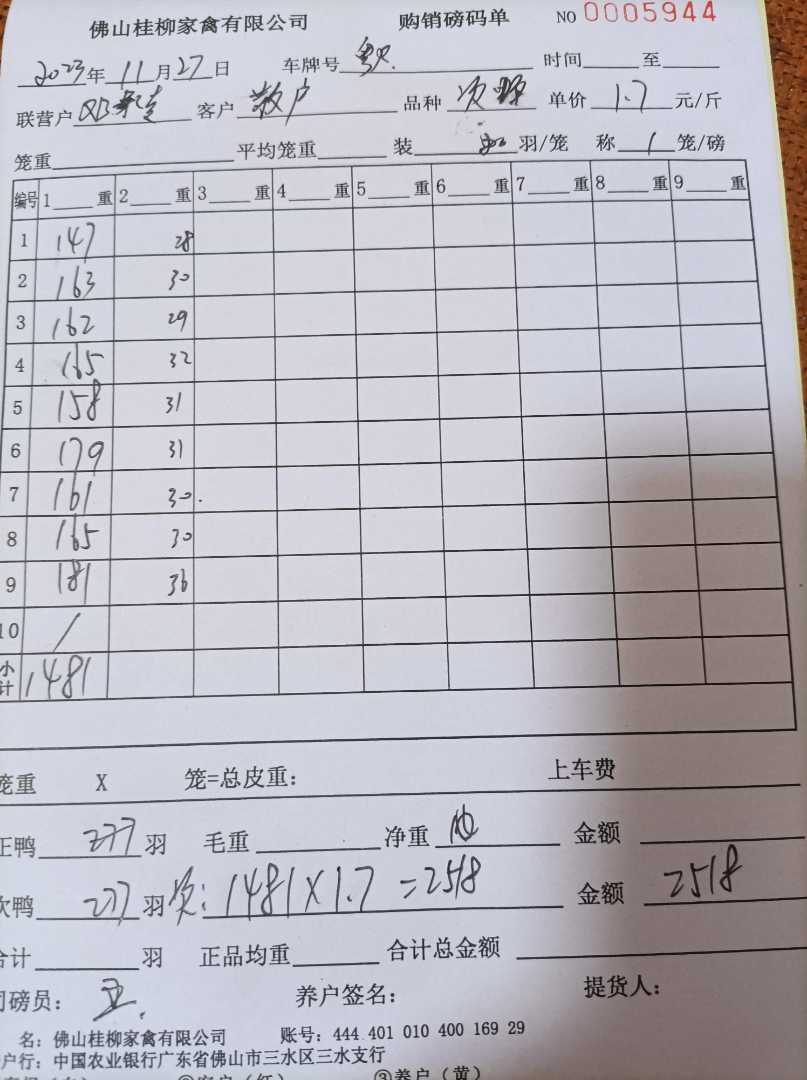 佛山桂柳家禽有限公司 购销磅码单 NO 0005944
2023年11月27日 车牌号 时间 至
联营户 客户 散户 品种 次 单价 1.7 元/斤
笼重 平均笼重 装 羽/笼 称 1 笼/磅
编号 1 重 2 重 3 重 4 重 5 重 6 重 7 重 8 重 9 重
1 147 28
2 163 30
3 162 29
4 165 32
5 158 31
6 179 31
7 161 30.
8 165 30
9 181 36
10 /
小计 1481
笼重 X 笼=总皮重: 上车费
正鸭 277 羽 毛重 净重 金额
次鸭 277 羽 次: 1481X1.7=2518 金额 2518
合计 羽 正品均重 合计总金额
司磅员: 养户签名: 提货人:
名: 佛山桂柳家禽有限公司 账号: 444 401 010 400 169 29
户行: 中国农业银行广东省佛山市三水区三水支行
②客户(红) ③养户(黄)